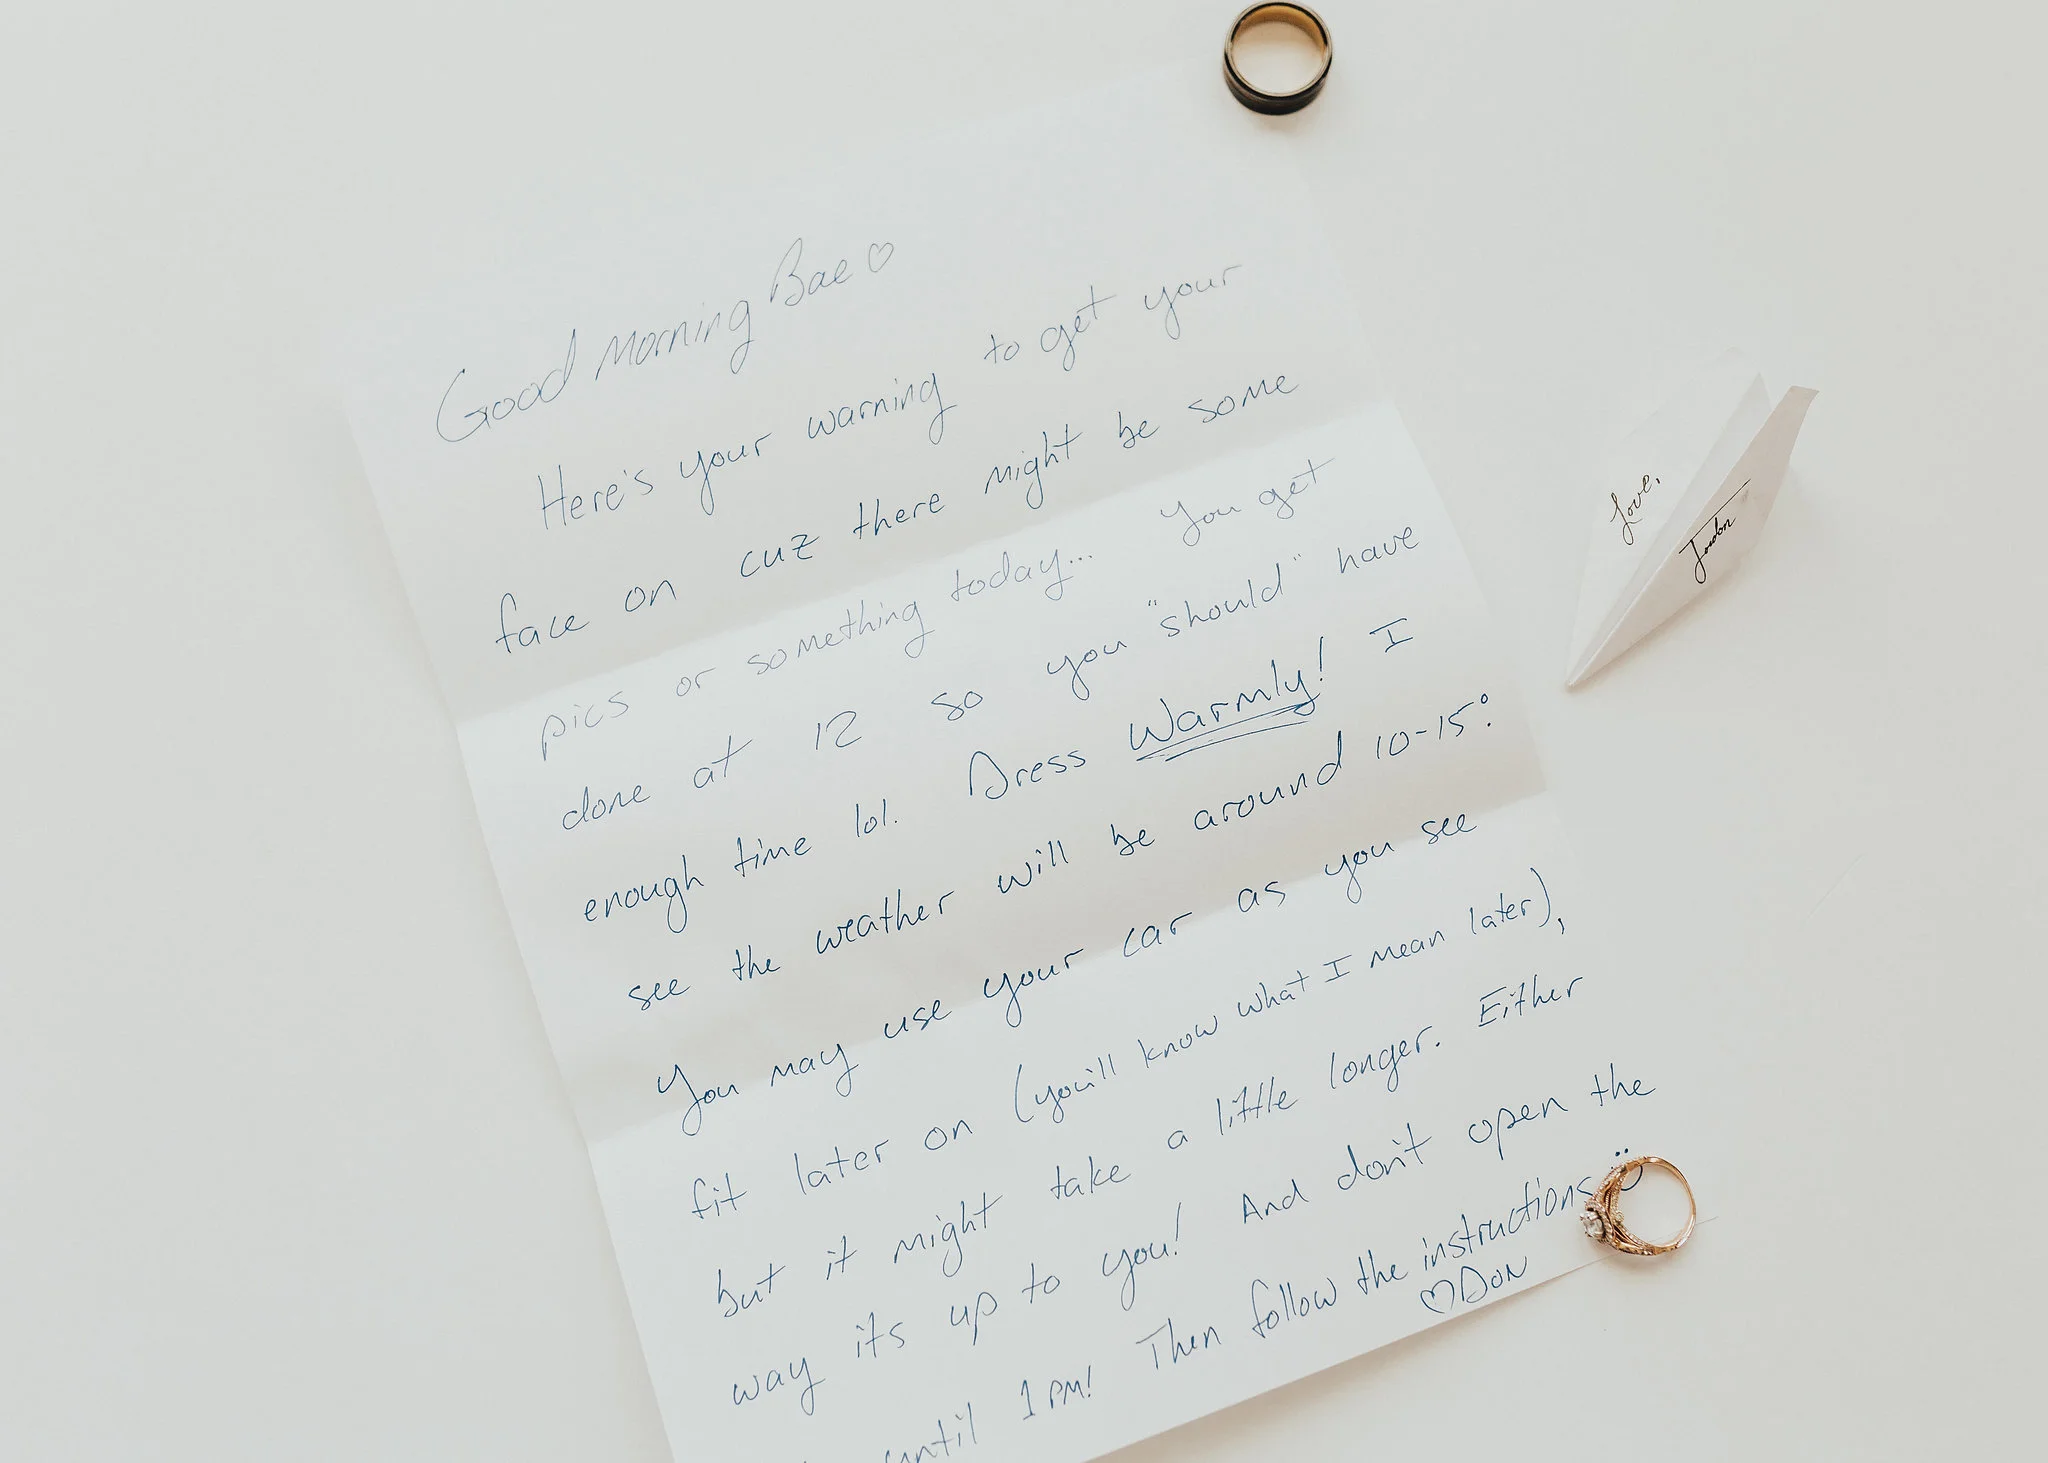 Good Morning Bae ♡
Here's your warning to get your
face on cuz there might be some
pics or something today... You get
done at 12 so you "should" have
enough time lol. Dress Warmly! I
see the weather will be around 10-15°.
You may use your car as you see
fit later on (you'll know what I mean later),
but it might take a little longer. Either
way its up to you! And don't open the
until 1 PM! Then follow the instructions
♡ Don
Love,